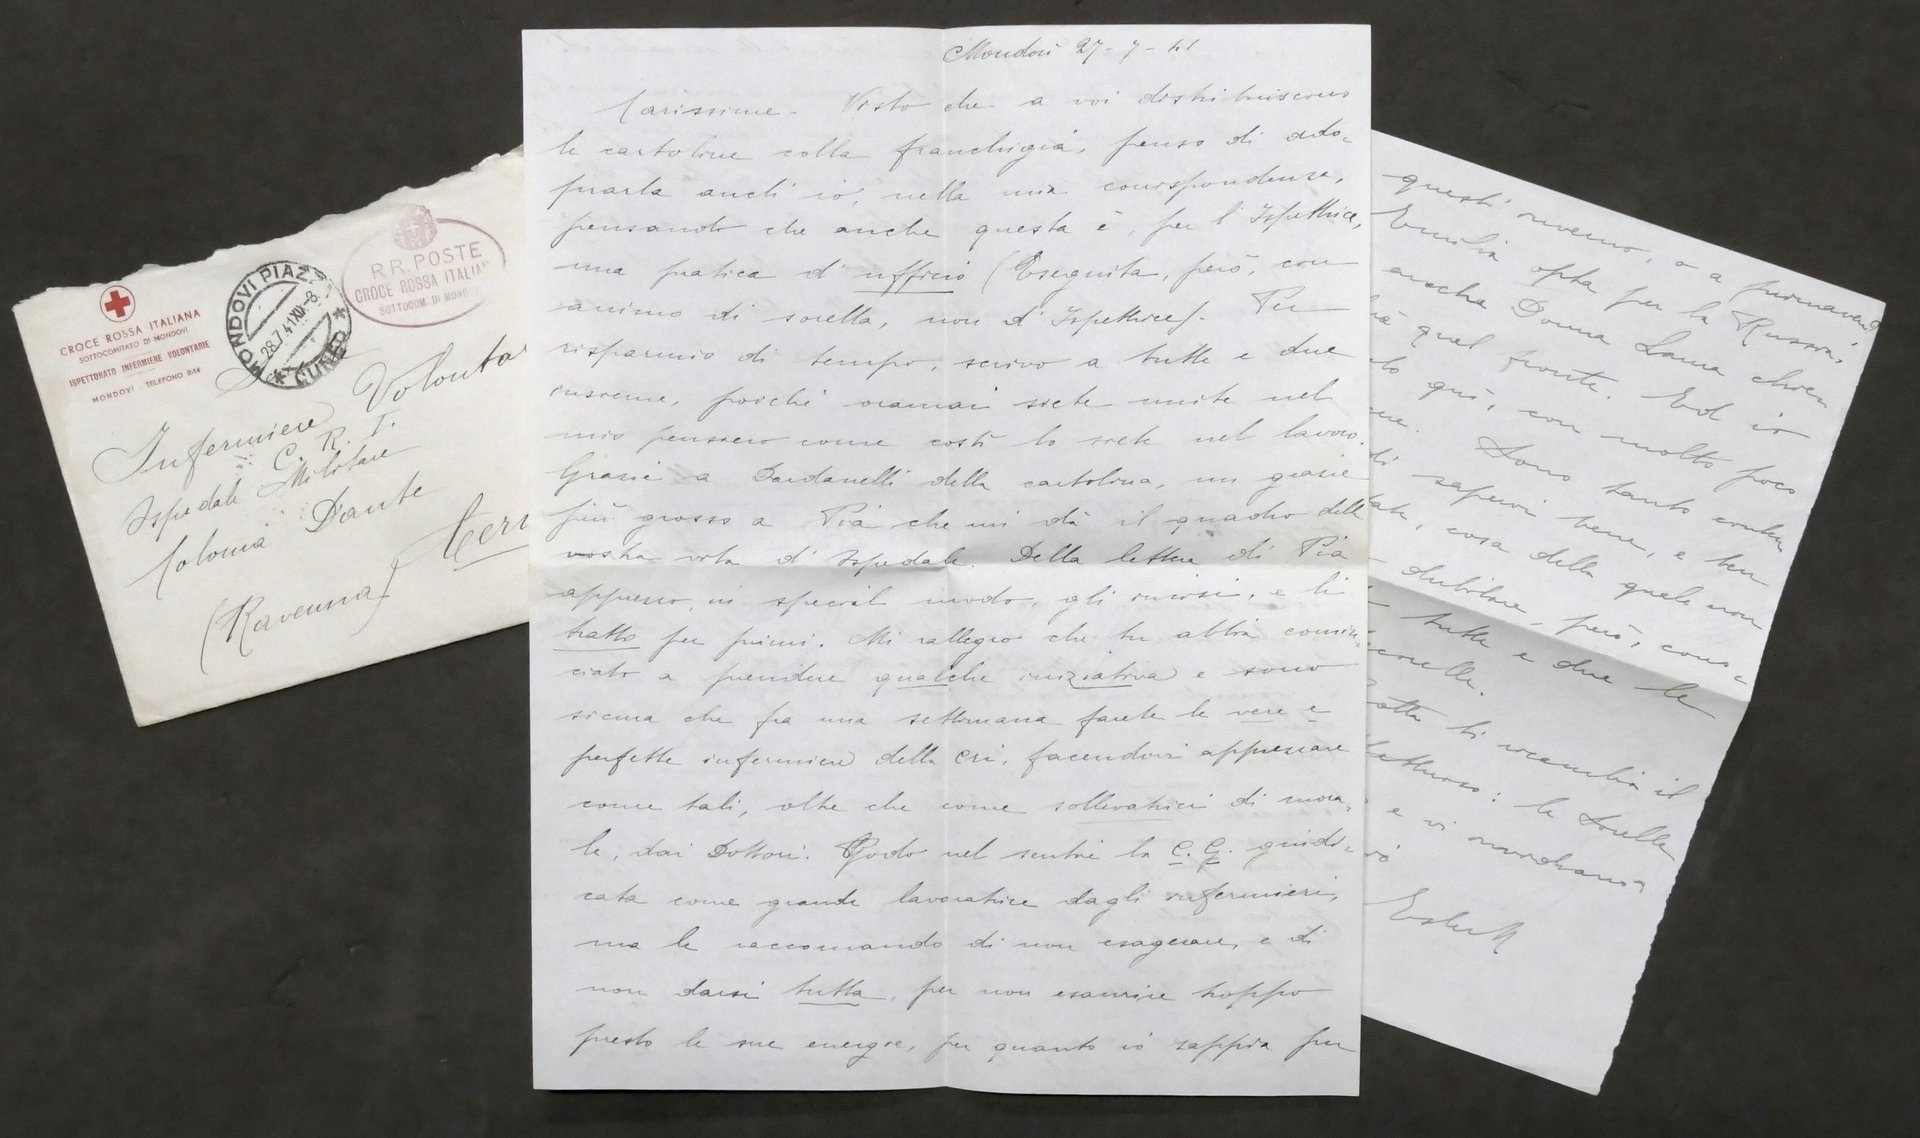 CROCE ROSSA ITALIANA
SOTTOCOMITATO DI MONDOVI
ISPETTORATO INFERMIERE VOLONTARIE
MONDOVI - TELEFONO 2-14
MONDOVI PIAZZ
28.7.41 XIX-8
* CUNEO *
R.R. POSTE
CROCE ROSSA ITALIA
SOTTOCOM. DI MONDO
Infermiere Volonta
C. R. I.
Ispedale Militare
Colonia Dante
Cerv
(Ravenna)
Mondovì 27-7-41
Carissime - Visto che a voi distribuiscono
le cartoline colla franchigia, penso di ado-
prarla anch'io, nella mia corrispondenza,
pensando che anche questa è, per l'Ispettrice,
una pratica d'ufficio (Eseguita, però, con
animo di sorella, non d'Ispettrice). Per
risparmio di tempo, scrivo a tutte e due
insieme, poichè oramai siete unite nel
mio pensiero come costì lo siete nel lavoro.
Grazie a Dardanelli della cartolina, un grazie
più grosso a Pia che mi dà il quadro della
vostra vita d'Ospedale. Della lettera di Pia
apprezzo, in special modo, gli incisi, e li
tratto per primi. Mi rallegro che tu abbia comin-
ciato a prendere qualche iniziativa e sono
sicura che fra una settimana farete le vere e
perfette infermiere della CRI, facendovi apprezzare
come tali, oltre che come sollevatrici di mora-
le, dai Dottori. Godo nel sentire la C. G. giudi-
cata come grande lavoratrice dagli infermieri,
ma le raccomando di non esagerare, e di
non darsi tutta, per non esaurire troppo
presto le sue energie, per quanto io sappia per
questi inverno, o a primavera
Emilia opta per la Russia,
anche Donna Laura chied
quel fronte. Ed io
qui, con molto poco
Sono tanto conten
di sapervi bene, e ben
cosa della quale non
dubitare, però, cono-
tutte e due le
ti ricambia il
: le Sorelle
e vi ricordiamo